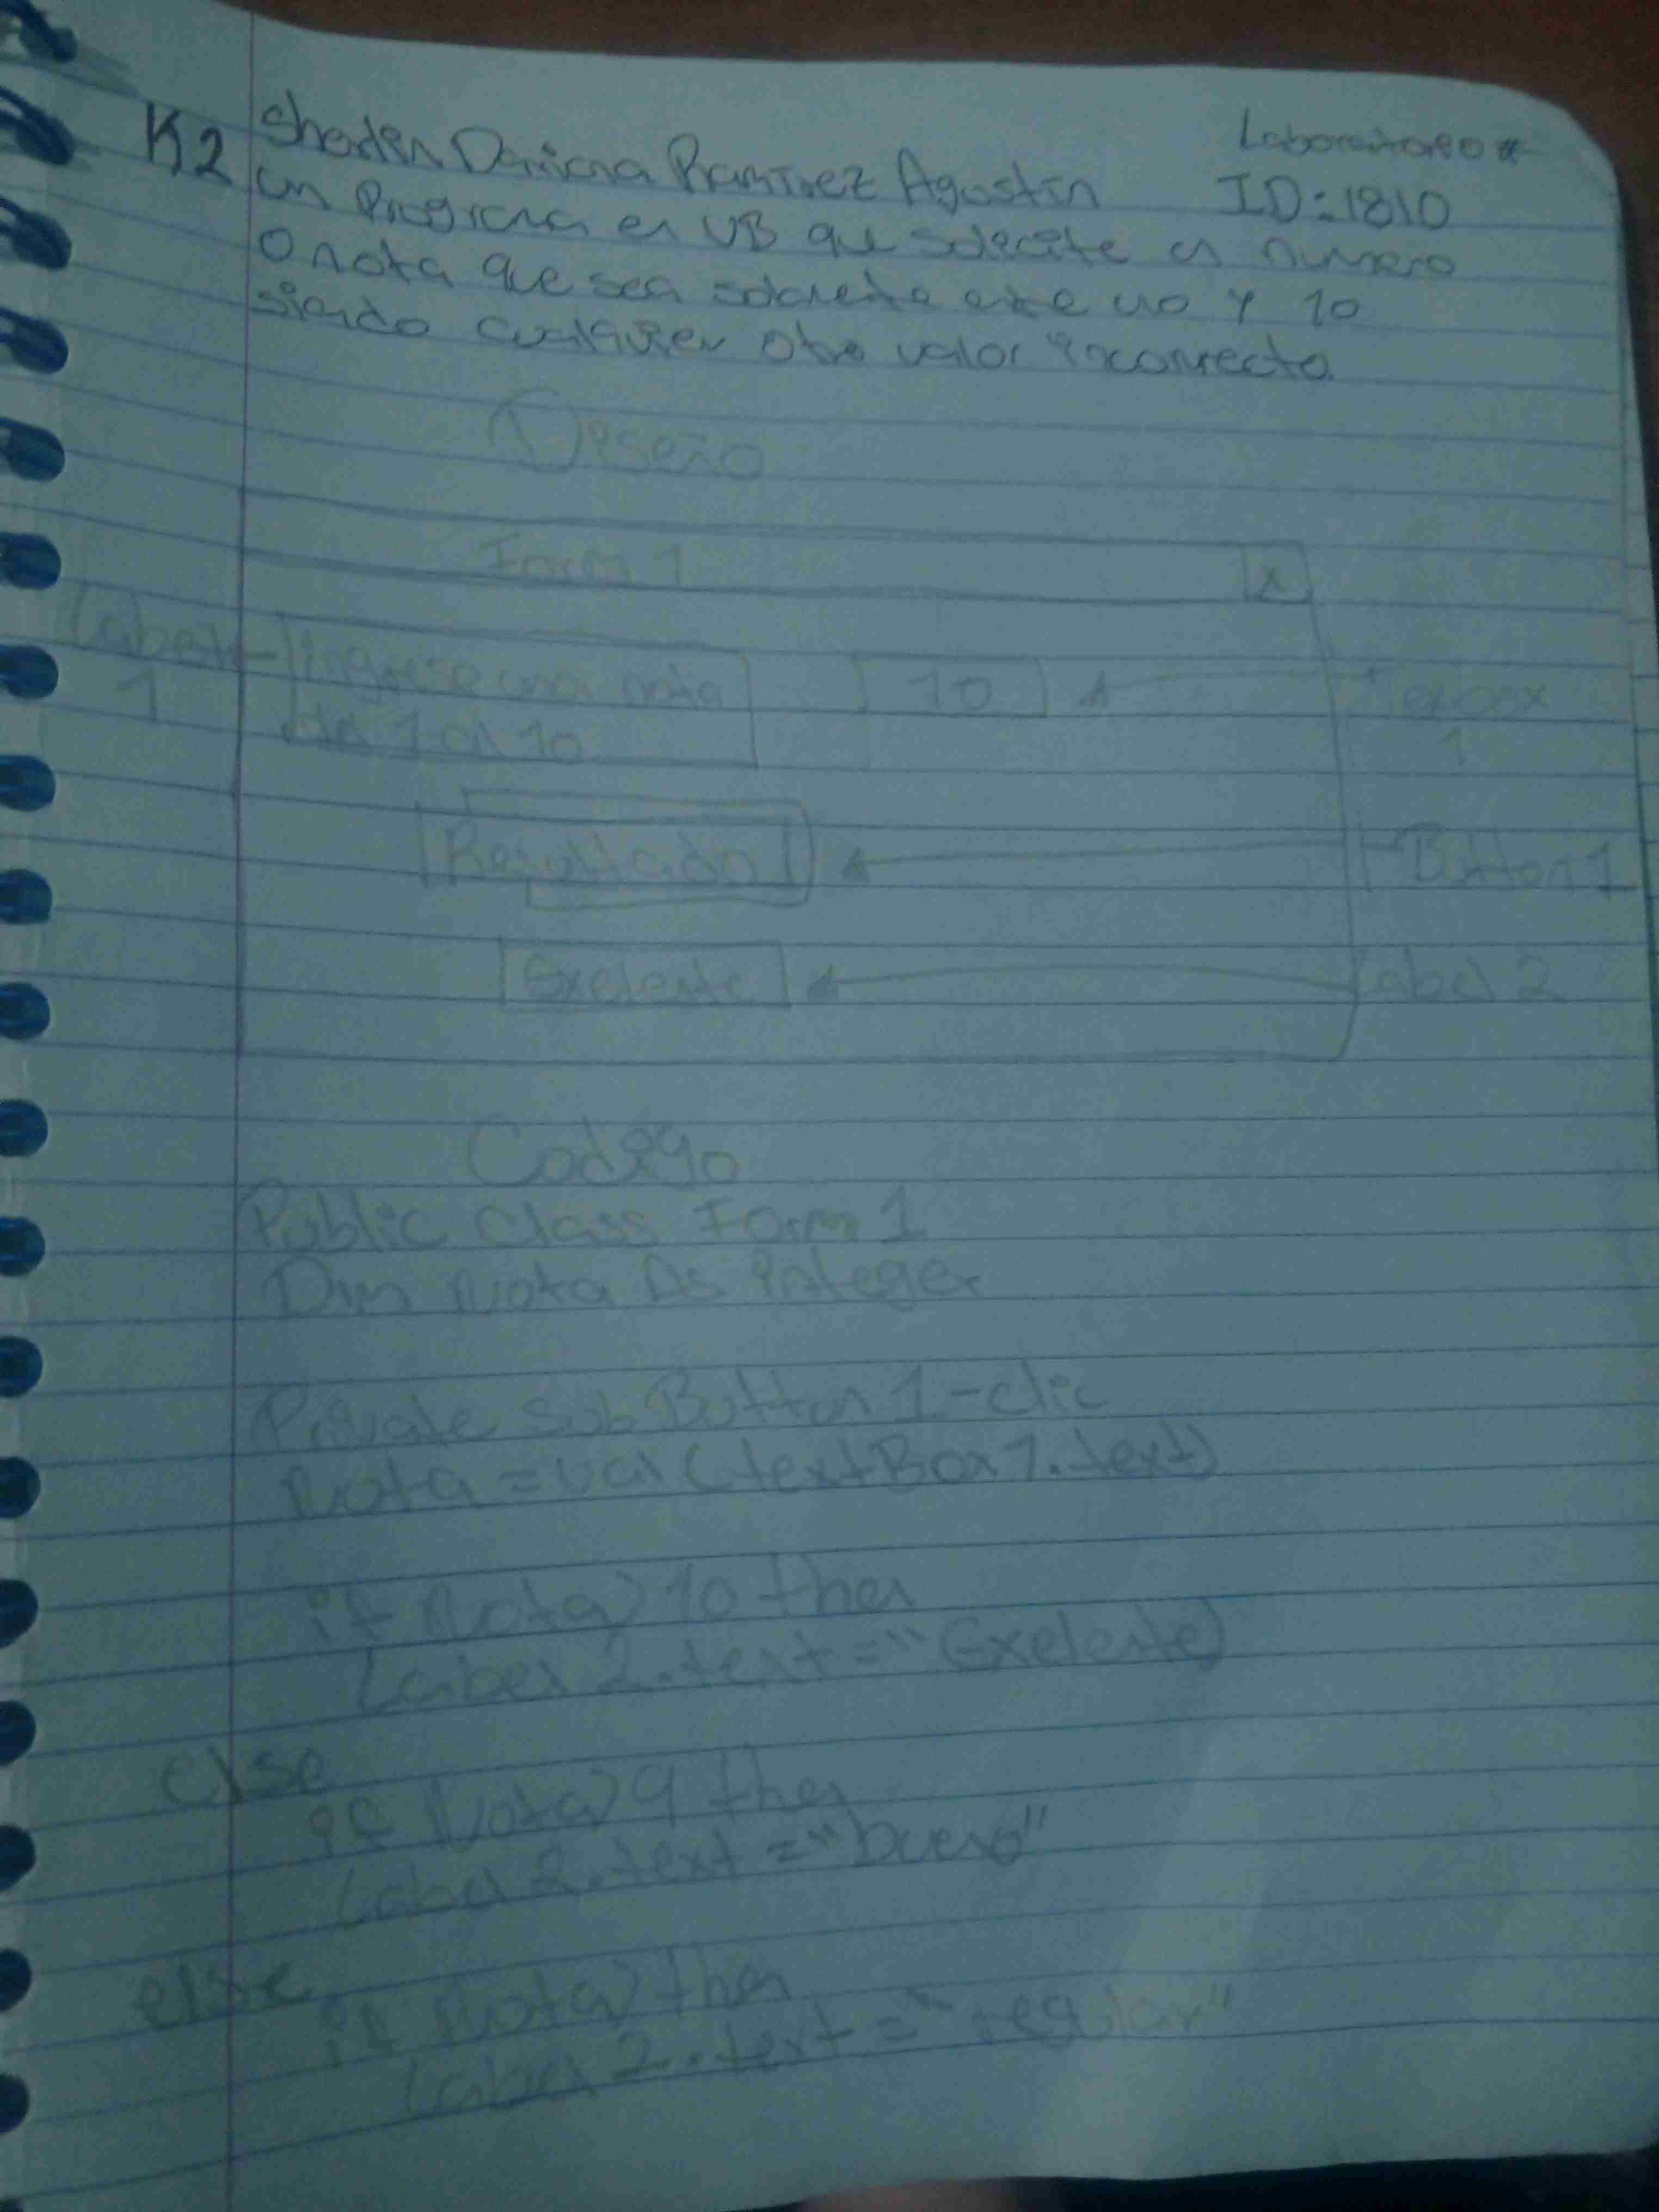 K2 Sheden Dariana Ramirez Agustin Laboratorio #
ID: 1810
un Programa en VB que solecite un numero
O nota que sea solamente entre uno y 10
siendo cualquier otro valor incorrecto.
Diseño
Form 1 X
Label 1 Ingrese una nota de 1 al 10 10 Texbox 1
Resultado Button 1
Exelente Label 2
Codigo
Public Class Form 1
Dim Nota As integer
Private Sub Button 1-clic
Nota = val (textBox1.text)
if Nota > 10 then
Label 2.text = "Exelente)
else
if Nota > 9 then
Label 2.text = "bueno"
else
if Nota > then
Label 2.text = "regular"